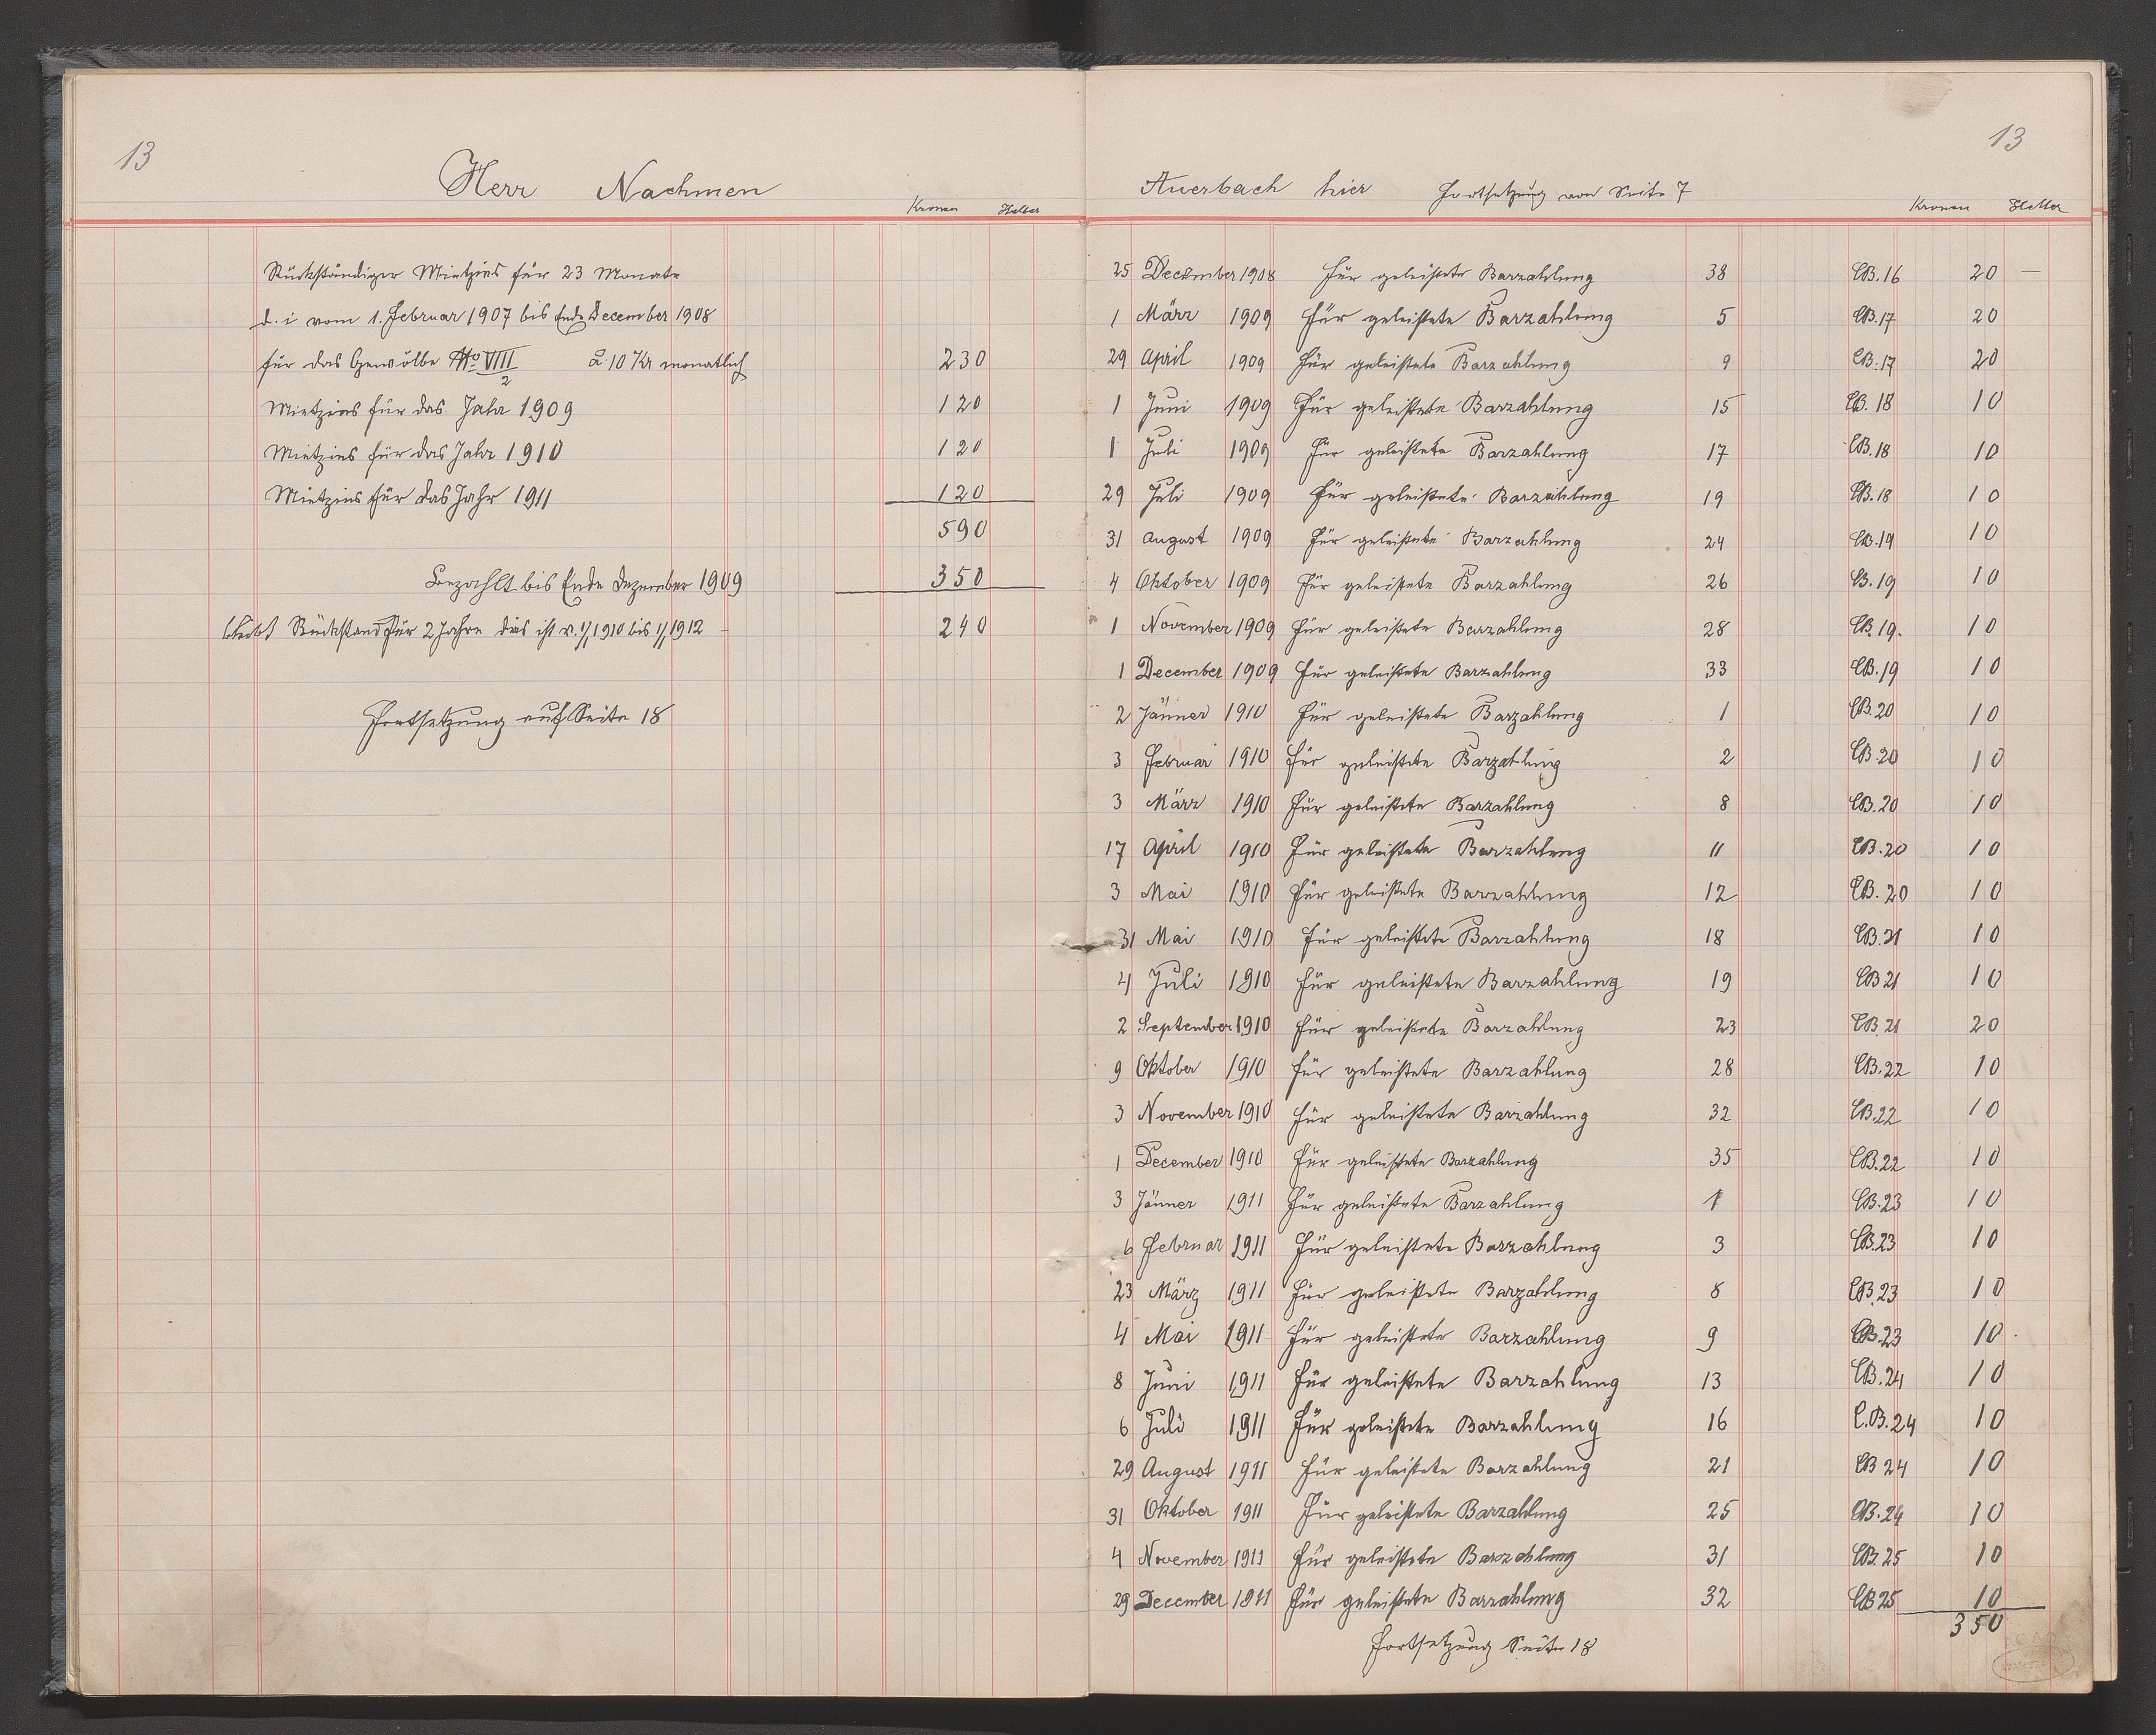 13
Herr Nachmen
Kronen Heller
Rückständiger Mietzins für 23 Monate
d. i vom 1. Februar 1907 bis Ende December 1908
für das Gewölbe No VIII/2 à 10 Kr monatlich 230
Mietzins für das Jahr 1909 120
Mietzins für das Jahr 1910 120
Mietzins für das Jahr 1911 120
590
Bezahlt bis Ende Dezember 1909 350
bleibt Rückstand für 2 Jahre das ist v. 1/1 1910 bis 1/1 1912 240
Fortsetzung auf Seite 18
13
Auerbach hier Fortsetzung von Seite 7
Kronen Heller
25 December 1908 Für geleistete Barzahlung 38 CB. 16 20 —
1 März 1909 Für geleistete Barzahlung 5 CB. 17 20
29 April 1909 Für geleistete Barzahlung 9 CB. 17 20
1 Juni 1909 Für geleistete Barzahlung 15 CB. 18 10
1 Juli 1909 Für geleistete Barzahlung 17 CB. 18 10
29 Juli 1909 Für geleistete Barzahlung 19 CB. 18 10
31 August 1909 Für geleistete Barzahlung 24 CB. 19 10
4 Oktober 1909 Für geleistete Barzahlung 26 CB. 19 10
1 November 1909 Für geleistete Barzahlung 28 CB. 19. 10
1 December 1909 Für geleistete Barzahlung 33 CB. 19 10
2 Jänner 1910 Für geleistete Barzahlung 1 CB. 20 10
3 Februar 1910 Für geleistete Barzahlung 2 CB. 20 10
3 März 1910 Für geleistete Barzahlung 8 CB. 20 10
17 April 1910 Für geleistete Barzahlung 11 CB. 20 10
3 Mai 1910 Für geleistete Barzahlung 12 CB. 20 10
31 Mai 1910 Für geleistete Barzahlung 18 CB. 21 10
4 Juli 1910 Für geleistete Barzahlung 19 CB 21 10
2 September 1910 Für geleistete Barzahlung 23 CB. 21 20
9 Oktober 1910 Für geleistete Barzahlung 28 CB. 22 10
3 November 1910 Für geleistete Barzahlung 32 CB. 22 10
1 December 1910 Für geleistete Barzahlung 35 CB. 22 10
3 Jänner 1911 Für geleistete Barzahlung 1 CB. 23 10
6 Februar 1911 Für geleistete Barzahlung 3 CB. 23 10
23 März 1911 Für geleistete Barzahlung 8 CB. 23 10
4 Mai 1911 Für geleistete Barzahlung 9 CB. 23 10
8 Juni 1911 Für geleistete Barzahlung 13 CB. 24 10
6 Juli 1911 Für geleistete Barzahlung 16 C.B. 24 10
29 August 1911 Für geleistete Barzahlung 21 CB 24 10
31 Oktober 1911 Für geleistete Barzahlung 25 CB. 24 10
4 November 1911 Für geleistete Barzahlung 31 CB. 25 10
29 December 1911 Für geleistete Barzahlung 32 CB 25 10
350
Fortsetzung Seite 18